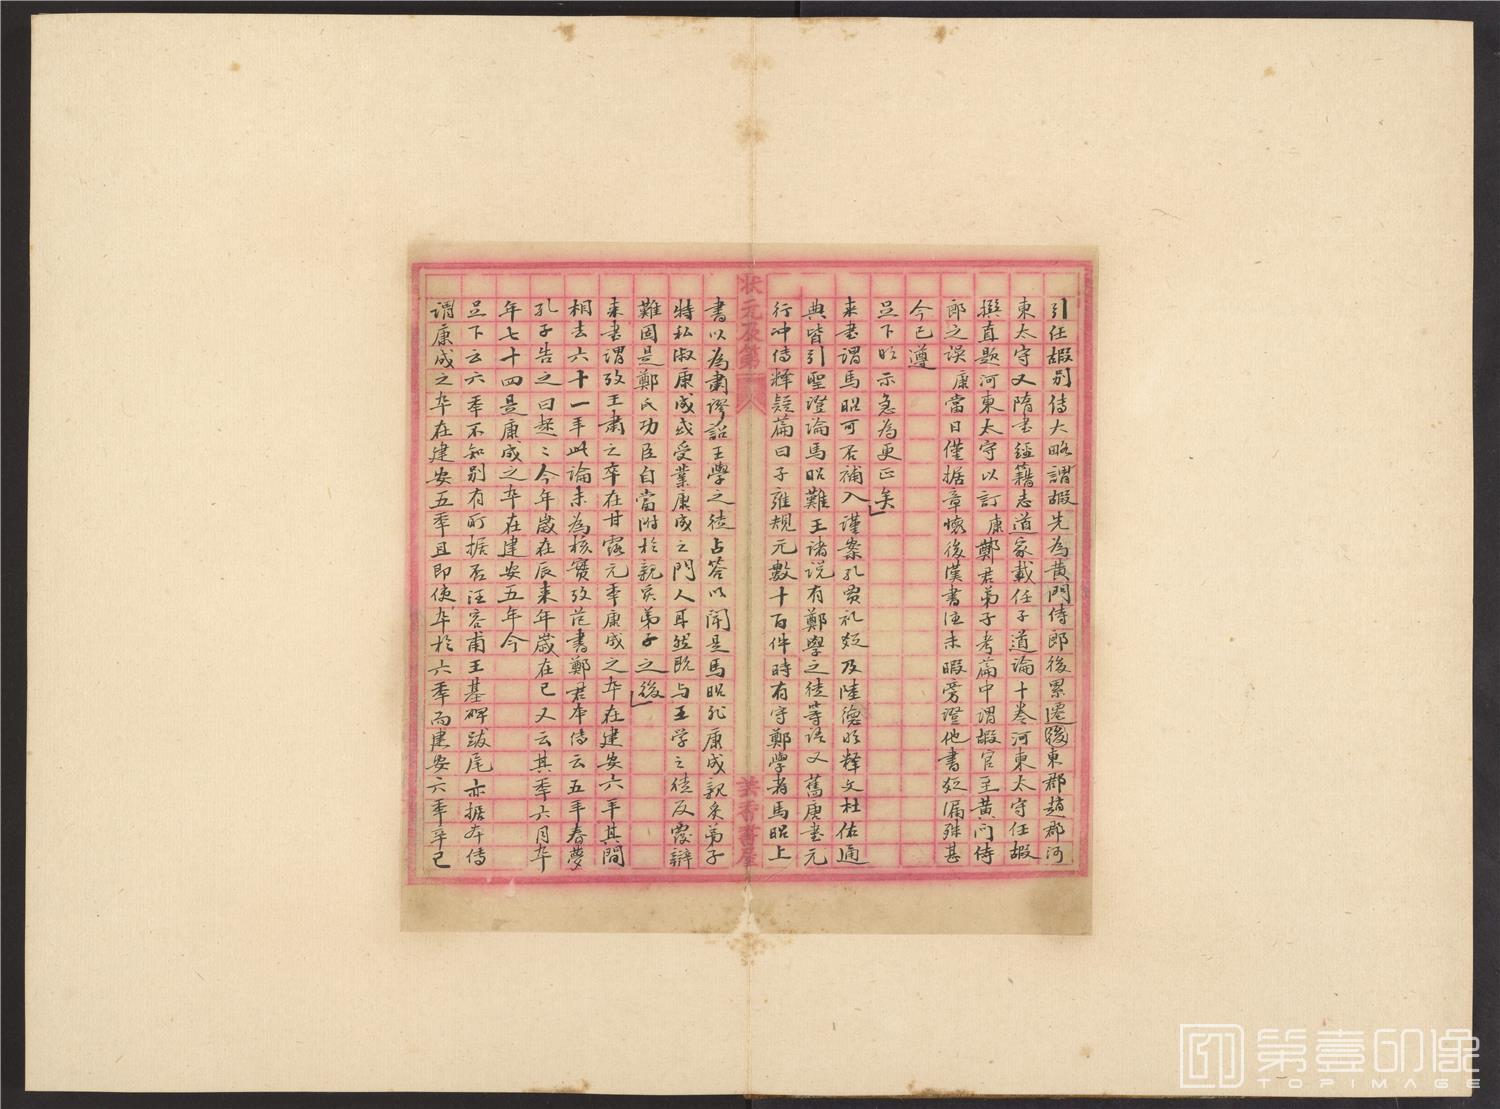 引任嘏別傳大略謂嘏先為黃門侍郎後累遷後東郡趙郡河
東太守又隋書經籍志道家載任子道論十卷河東太守任嘏
撰直題河東太守以訂康鄭君弟子考篇中謂嘏官至黃門侍
郎之誤康當日僅據章懷後漢書注未暇旁證他書疑漏殊甚
今已遵
足下所示急為更正矣
來書謂馬昭可否補入謹案孔賈禮疑及陸德明釋文杜佑通
典皆引聖證論馬昭難王諸說有鄭學之徒等語又舊唐書元
行沖傳釋疑篇曰子雍規元數十百件時有守鄭學者馬昭上
狀元及第人
葉香書屋
書以為肅謬詔王學之徒占答以聞是馬昭非康成親炙弟子
特私淑康成或受業康成之門人耳然既与王学之徒反覆辯
難固是鄭氏功臣自當附於親炙弟子之後
來書謂攷王肅之卒在甘露元年康成之卒在建安六年其間
相去六十一年此論未為核實攷范書鄭君本傳云五年春夢
孔子告之曰起起今年歲在辰來年歲在巳又云其年六月卒
年七十四是康成之卒在建安五年今
足下云六年不知別有所據否汪容甫王基碑跋尾亦據本傳
謂康成之卒在建安五年且即使卒於六年而建安六年辛巳
第壹印像
TOPIMAGE